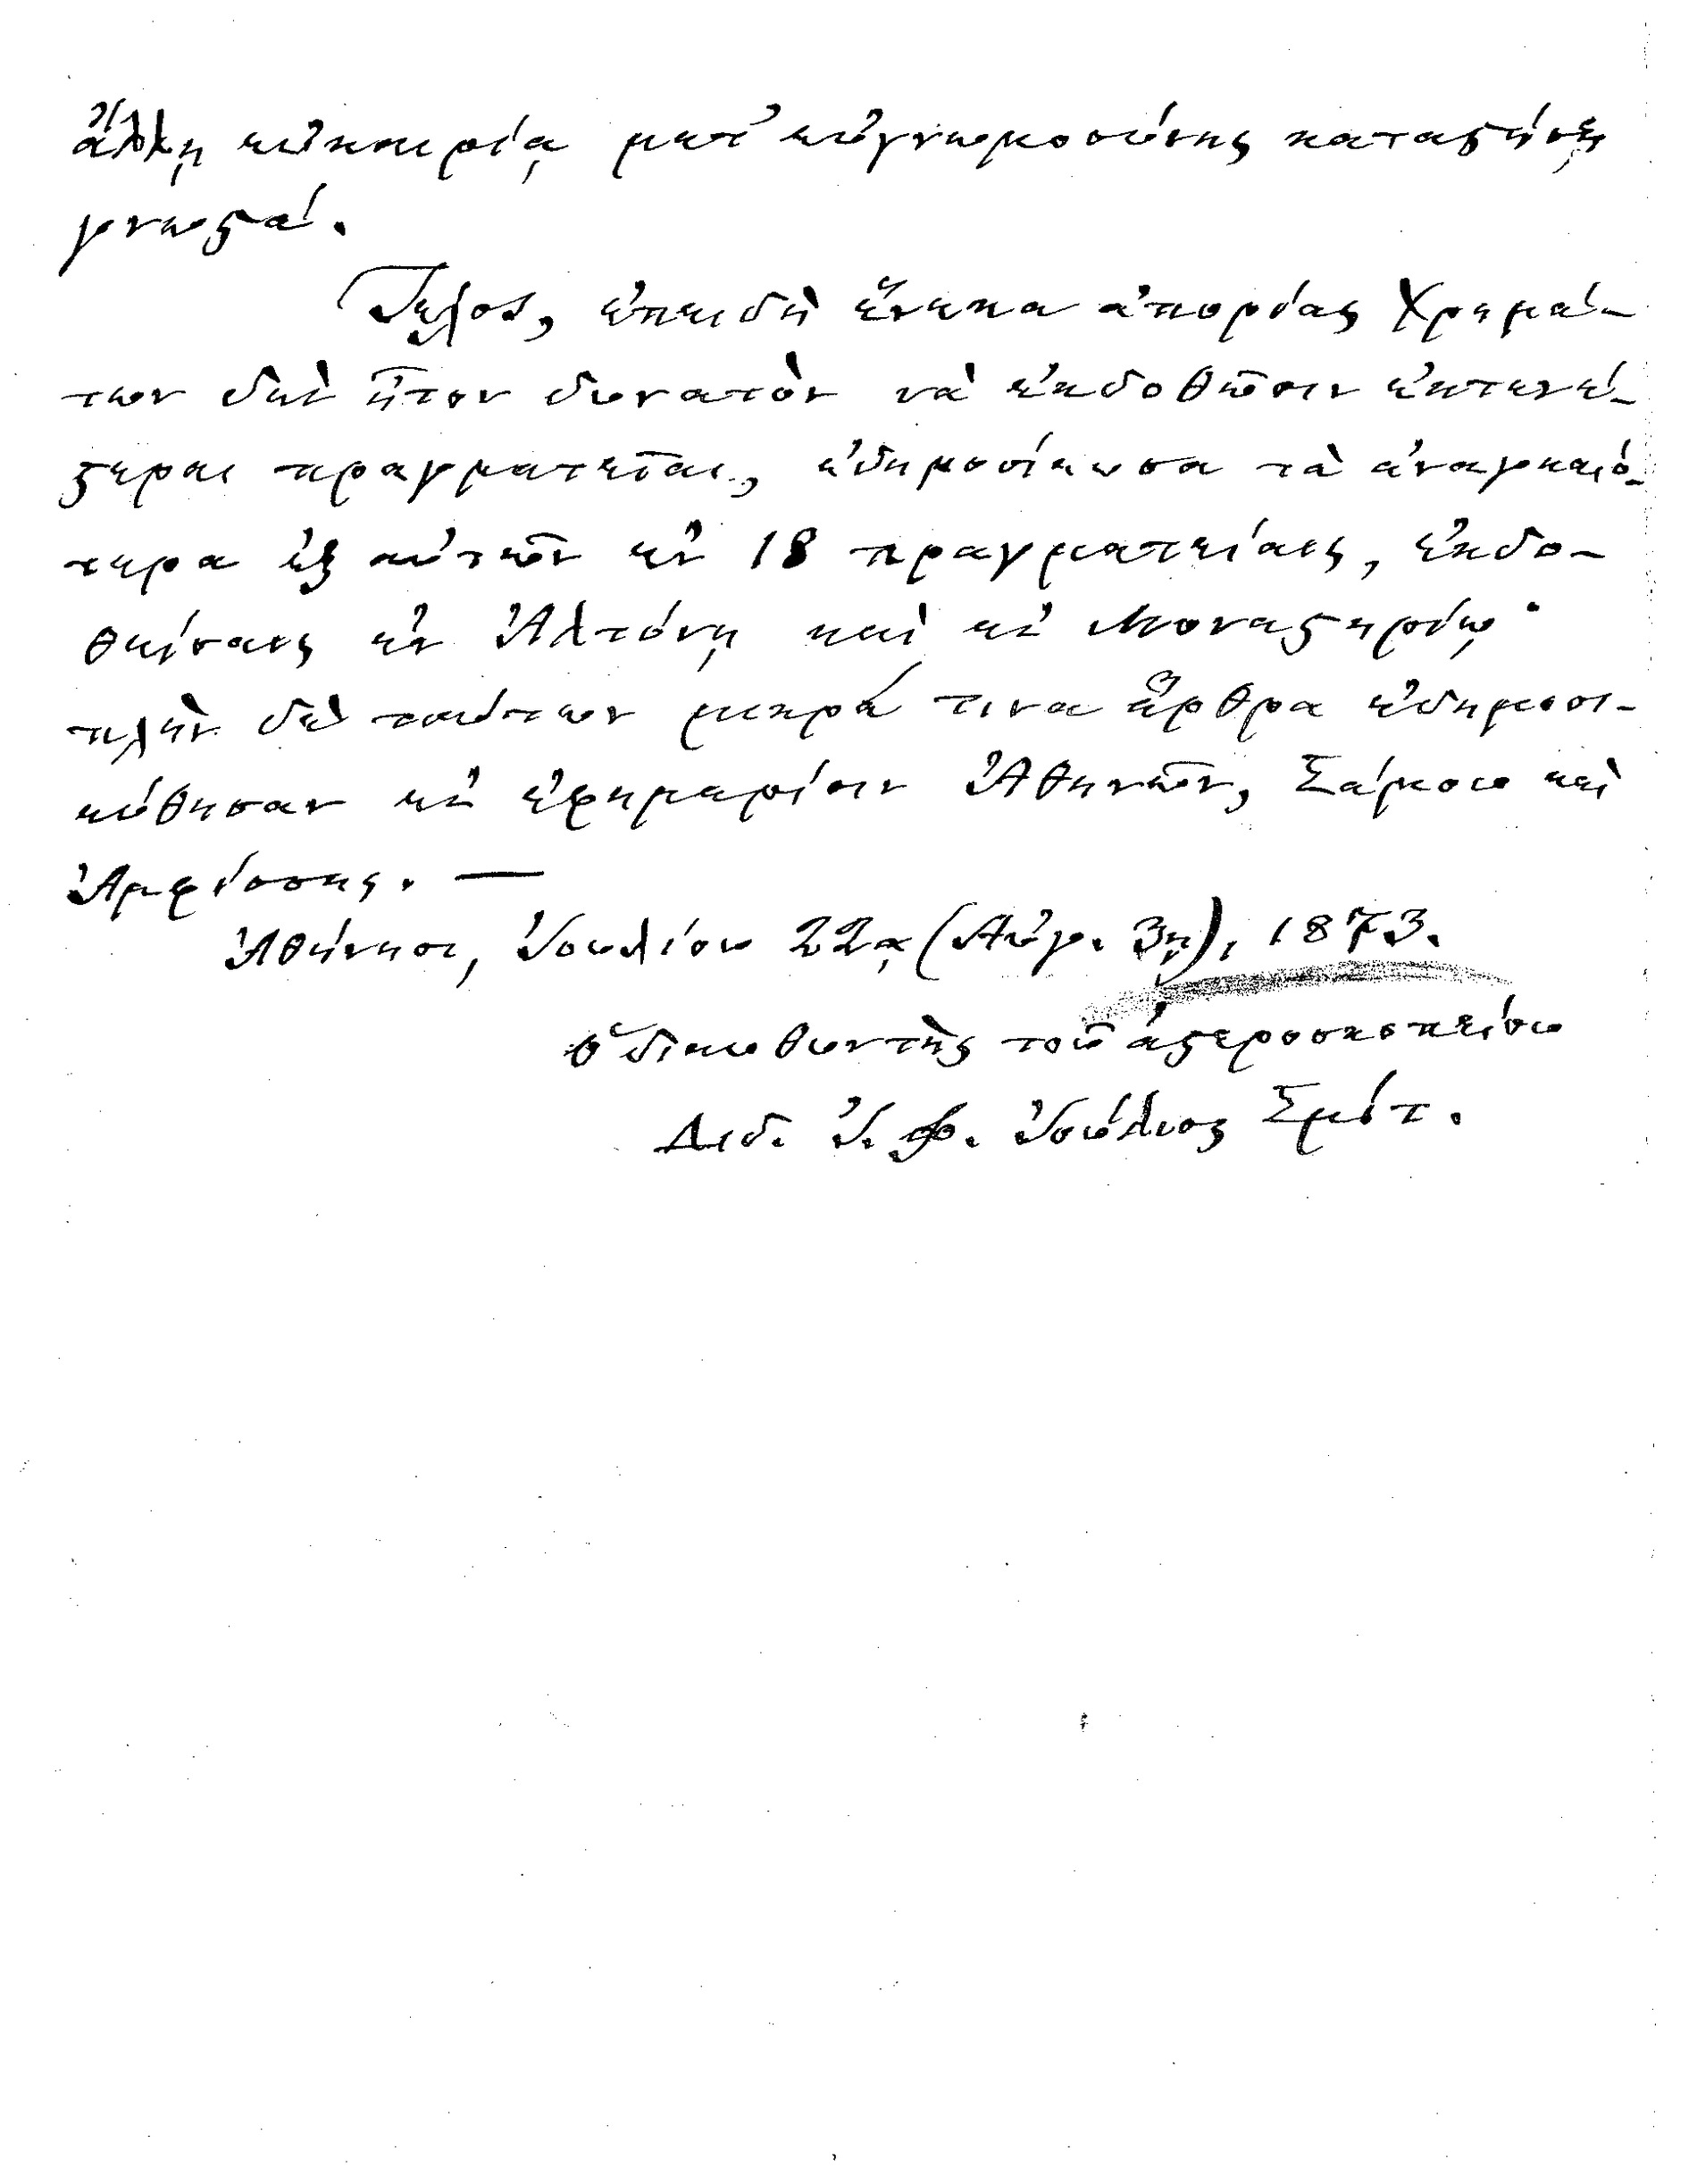 ἄλλῃ εὐκαιρίᾳ μετ' εὐγνωμοσύνης καταστήσῃ
γνωστά.
Τέλος, ἐπειδὴ ἕνεκα ἀπορίας χρημά-
των δὲν ἦτον δυνατὸν νὰ ἐκδοθῶσιν ἐκτενέ-
στεραι πραγματεῖαι, ἐδημοσίευσα τὰ ἀναγκαιό-
τερα ἐξ αὐτῶν ἐν 18 πραγματείαις, ἐκδο-
θείσαις ἐν Ἀλτόνῃ καὶ ἐν Μοναστηρίῳ·
πλὴν δὲ τούτων μικρά τινα ἄρθρα ἐδημοσι-
εύθησαν ἐν ἐφημερίσιν Ἀθηνῶν, Σάμου καὶ
Ἀμφίσσης. —
Ἀθήνησι, Ἰουλίου 22ᾳ (Αὐγ. 3ῃ), 1873.
ὁ διευθυντὴς τοῦ ἀστεροσκοπείου
Διδ. Ἰ. Φ. Ἰούλιος Σμίτ.